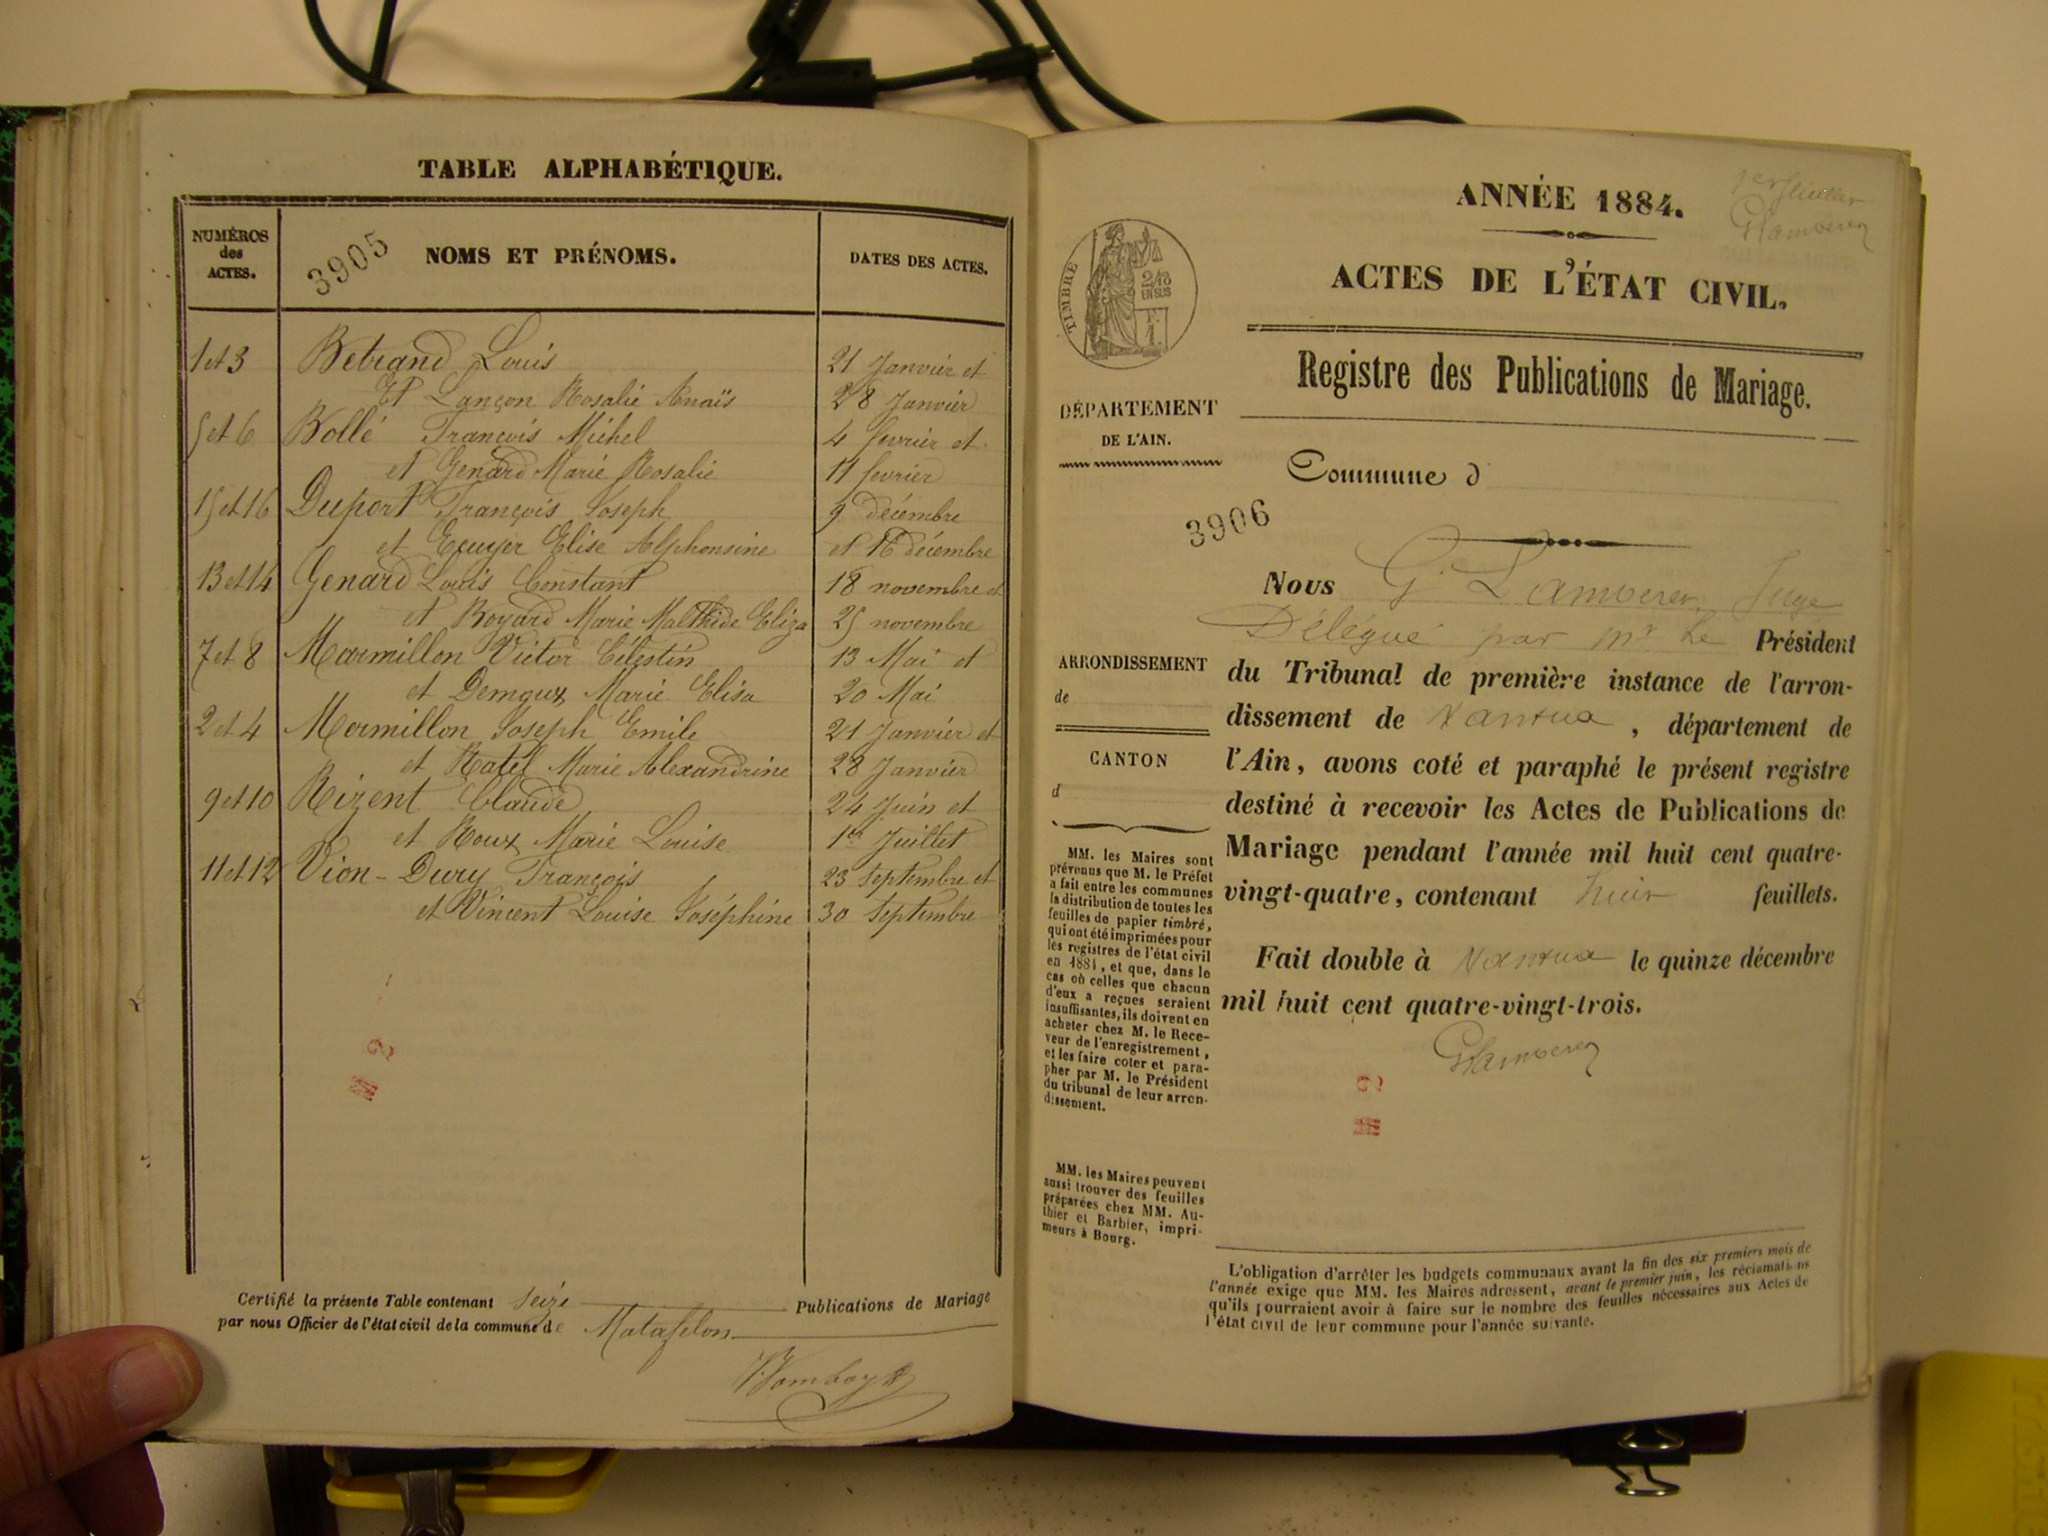 TABLE ALPHABÉTIQUE.
NUMÉROS
des
ACTES.
3905
NOMS ET PRÉNOMS.
DATES DES ACTES.
1 et 3 Betrand Louis 21 Janvier et
Et Lançon Rosalie Anaïs 28 Janvier
5 et 6 Bollé François Michel 4 fevrier et
et Genard Marie Rosalie 11 fevrier
15 et 16 Duport François Joseph 9 décembre
et Ecuyer Elise Alphonsine et 16 décembre
13 et 14 Genard Louis Constant 18 novembre et
et Boyard Marie Malthide Eliza 25 novembre
7 et 8 Marmillon Victor Célestin 13 Mai et
et Demgux Marie Elisa 20 Mai
2 et 4 Mermillon Joseph Emile 21 Janvier et
et Ratel Marie Alexandrine 28 Janvier
9 et 10 Rizent Claude 24 Juin et
et Roux Marie Louise 1er Juillet
11 et 12 Vion-Dury François 23 septembre et
et Vincent Louise Joséphine 30 septembre
Certifié la présente Table contenant seize Publications de Mariage
par nous Officier de l'état civil de la commune de Matafelon
ANNÉE 1884.
1er feuillet
ACTES DE L'ÉTAT CIVIL.
TIMBRE
2/10
EN SUS
F.
1.
Registre des Publications de Mariage.
DÉPARTEMENT
DE L'AIN.
Commune d
3906
Nous G. Lamberen Juge
Délégué par Mr Le Président
du Tribunal de première instance de l'arron-
dissement de Nantua, département de
l'Ain, avons coté et paraphé le présent registre
destiné à recevoir les Actes de Publications de
Mariage pendant l'année mil huit cent quatre-
vingt-quatre, contenant huit feuillets.
Fait double à Nantua le quinze décembre
mil huit cent quatre-vingt-trois.
ARRONDISSEMENT
de
CANTON
d
MM. les Maires sont
prévenus que M. le Préfet
a fait entre les communes
la distribution de toutes les
feuilles de papier timbré,
qui ont été imprimées pour
les registres de l'état civil
en 1884, et que, dans le
cas où celles que chacun
d'eux a reçues seraient
insuffisantes, ils doivent en
acheter chez M. le Rece-
veur de l'enregistrement,
et les faire coter et para-
pher par M. le Président
du tribunal de leur arron-
dissement.
MM. les Maires peuvent
aussi trouver des feuilles
préparées chez MM. Au-
thier et Barbier, impri-
meurs à Bourg.
L'obligation d'arrêter les budgets communaux avant la fin des six premiers mois de
l'année exige que MM. les Maires adressent, avant le premier juin, les réclamations
qu'ils pourraient avoir à faire sur le nombre des feuilles nécessaires aux Actes de
l'état civil de leur commune pour l'année suivante.